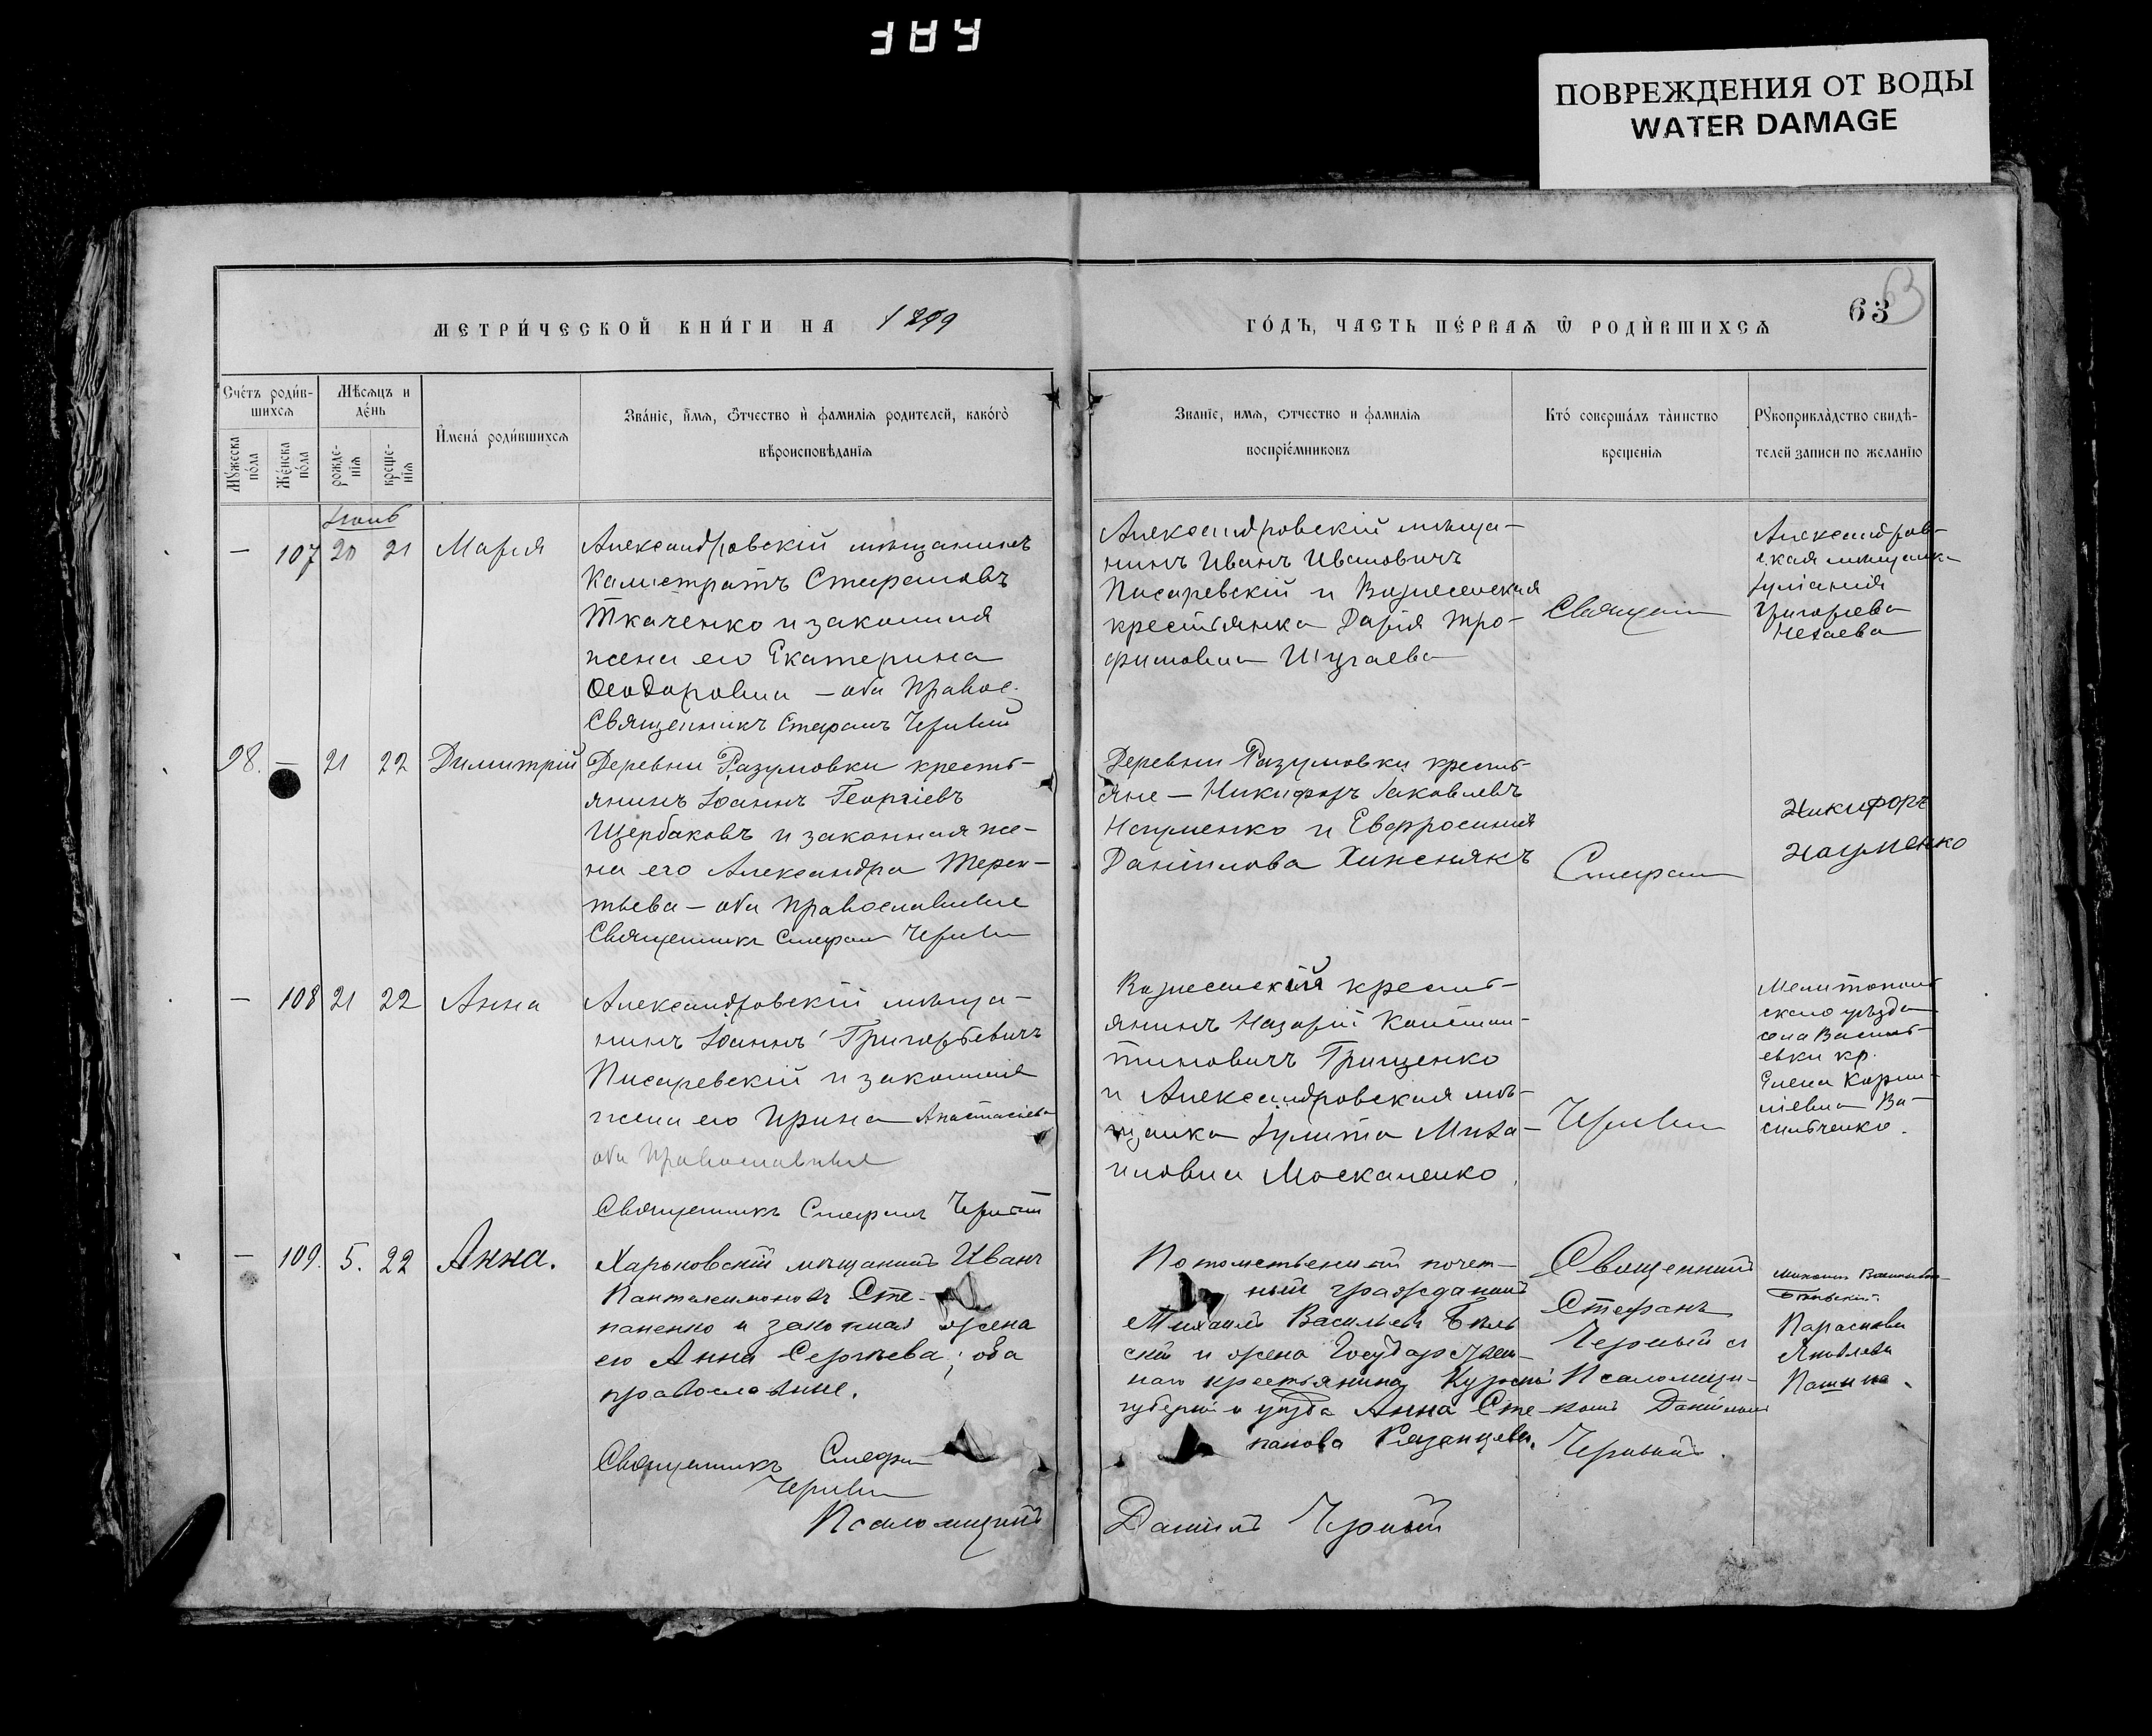 ПОВРЕЖДЕНИЯ ОТ ВОДЫ
WATER DAMAGE
МЕТРИ́ЧЕСКОЙ КНИ́ГИ НА 1899
ГО́ДЪ, ЧАСТЬ ПЕ́РВАѦ Ѿ РОДИ́ВШИХСѦ
63
63
Сче́тъ роди́в-
шихсѧ
Мѣсѧцъ и
де́нь
Мꙋжеска
по́ла
Же́нска
по́ла
рожде-
нїѧ
креще-
нїѧ
И҆мена́ роди́вшихсѧ
Зва́нїе, и҆́мѧ, ѻ҆́тчество и҆ фамилїѧ родителей, како́гѡ
вѣроисповѣданїѧ
Званїе, имѧ, ѻтчество и фамилїѧ
воспрїе́мниковъ
Кто́ соверша́лъ та́инство
крещенїѧ
Рꙋкоприкла́дство свидѣ-
телей записи по желанїю
Іюнь
— 107 20 21 Марія
Александровскій мѣщанинъ
Калистратъ Стефановъ
Ткаченко и законная
жена его Екатерина
Ѳеодоровна — оба правос.
Священникъ Стефанъ Черный
Александровскій мѣща-
нинъ Иванъ Ивановичъ
Писаревскій и Вознесенская
крестьянка Дарія Тро-
фимовна
Священ
Александров-
ская мѣщанка
Іуліанія
Григорьева
Нехаева
98. — 21 22 Димитрій
Деревни Разумовки кресть-
янинъ Іоаннъ Георгіевъ
Щербаковъ и законная же-
на его Александра Терен-
тьева — оба православные
Священникъ Стефан Черны
Деревни Разумовки кресть-
яне — Никифоръ Іаковлевъ
Науменко и Евфросинія
Даніилова Хижнякъ
Стефан
Никифоръ
Науменко
— 108 21 22 Анна
Александровскій мѣща-
нинъ Іоаннъ Григорьевичъ
Писаревскій и законная
жена его Ирина Анастасіева
оба православные
Священникъ Стефанъ Черный
Вознесенскій кресть-
янинъ Назарій Констан-
тиновичъ Грищенко
и Александровская мѣ-
щанка Іулита Миха-
иловна Москаленко
Черны
Мелитополь-
скаго уѣзда
села Василь-
евки кр.
Елена Корни-
ліевна Ва-
сильченко.
— 109. 5. 22 Анна.
Харьковскій мѣщанинъ Иванъ
Пантелеимоновъ Сте-
паненко и законная жена
его Анна Сергѣева; оба
православные.
Священникъ Стефан
Черны
Псаломщикъ
Потомственный почет-
ный гражданинъ
Михаилъ Васильевъ Бѣль
скій и жена Государствен-
наго крестьянина Курской
губерніи и уѣзда Анна Сте-
панова Рязанцева.
Даніилъ Черный
Священникъ
Стефанъ
Черный и
Псаломщи-
комъ Даніиломъ
Чернымъ.
Михаилъ
Бѣльскій
Параскева
Яковлева
Пашина.